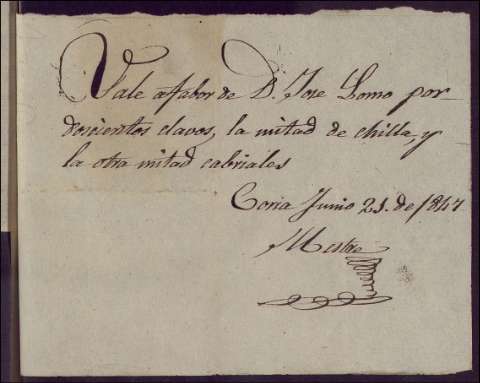 Vale afabor de D. Jose Lomo por
doscientos clavos, la mitad de chilla, y
la otra mitad cabriales
Coria Junio 21. de 1847
Mestre